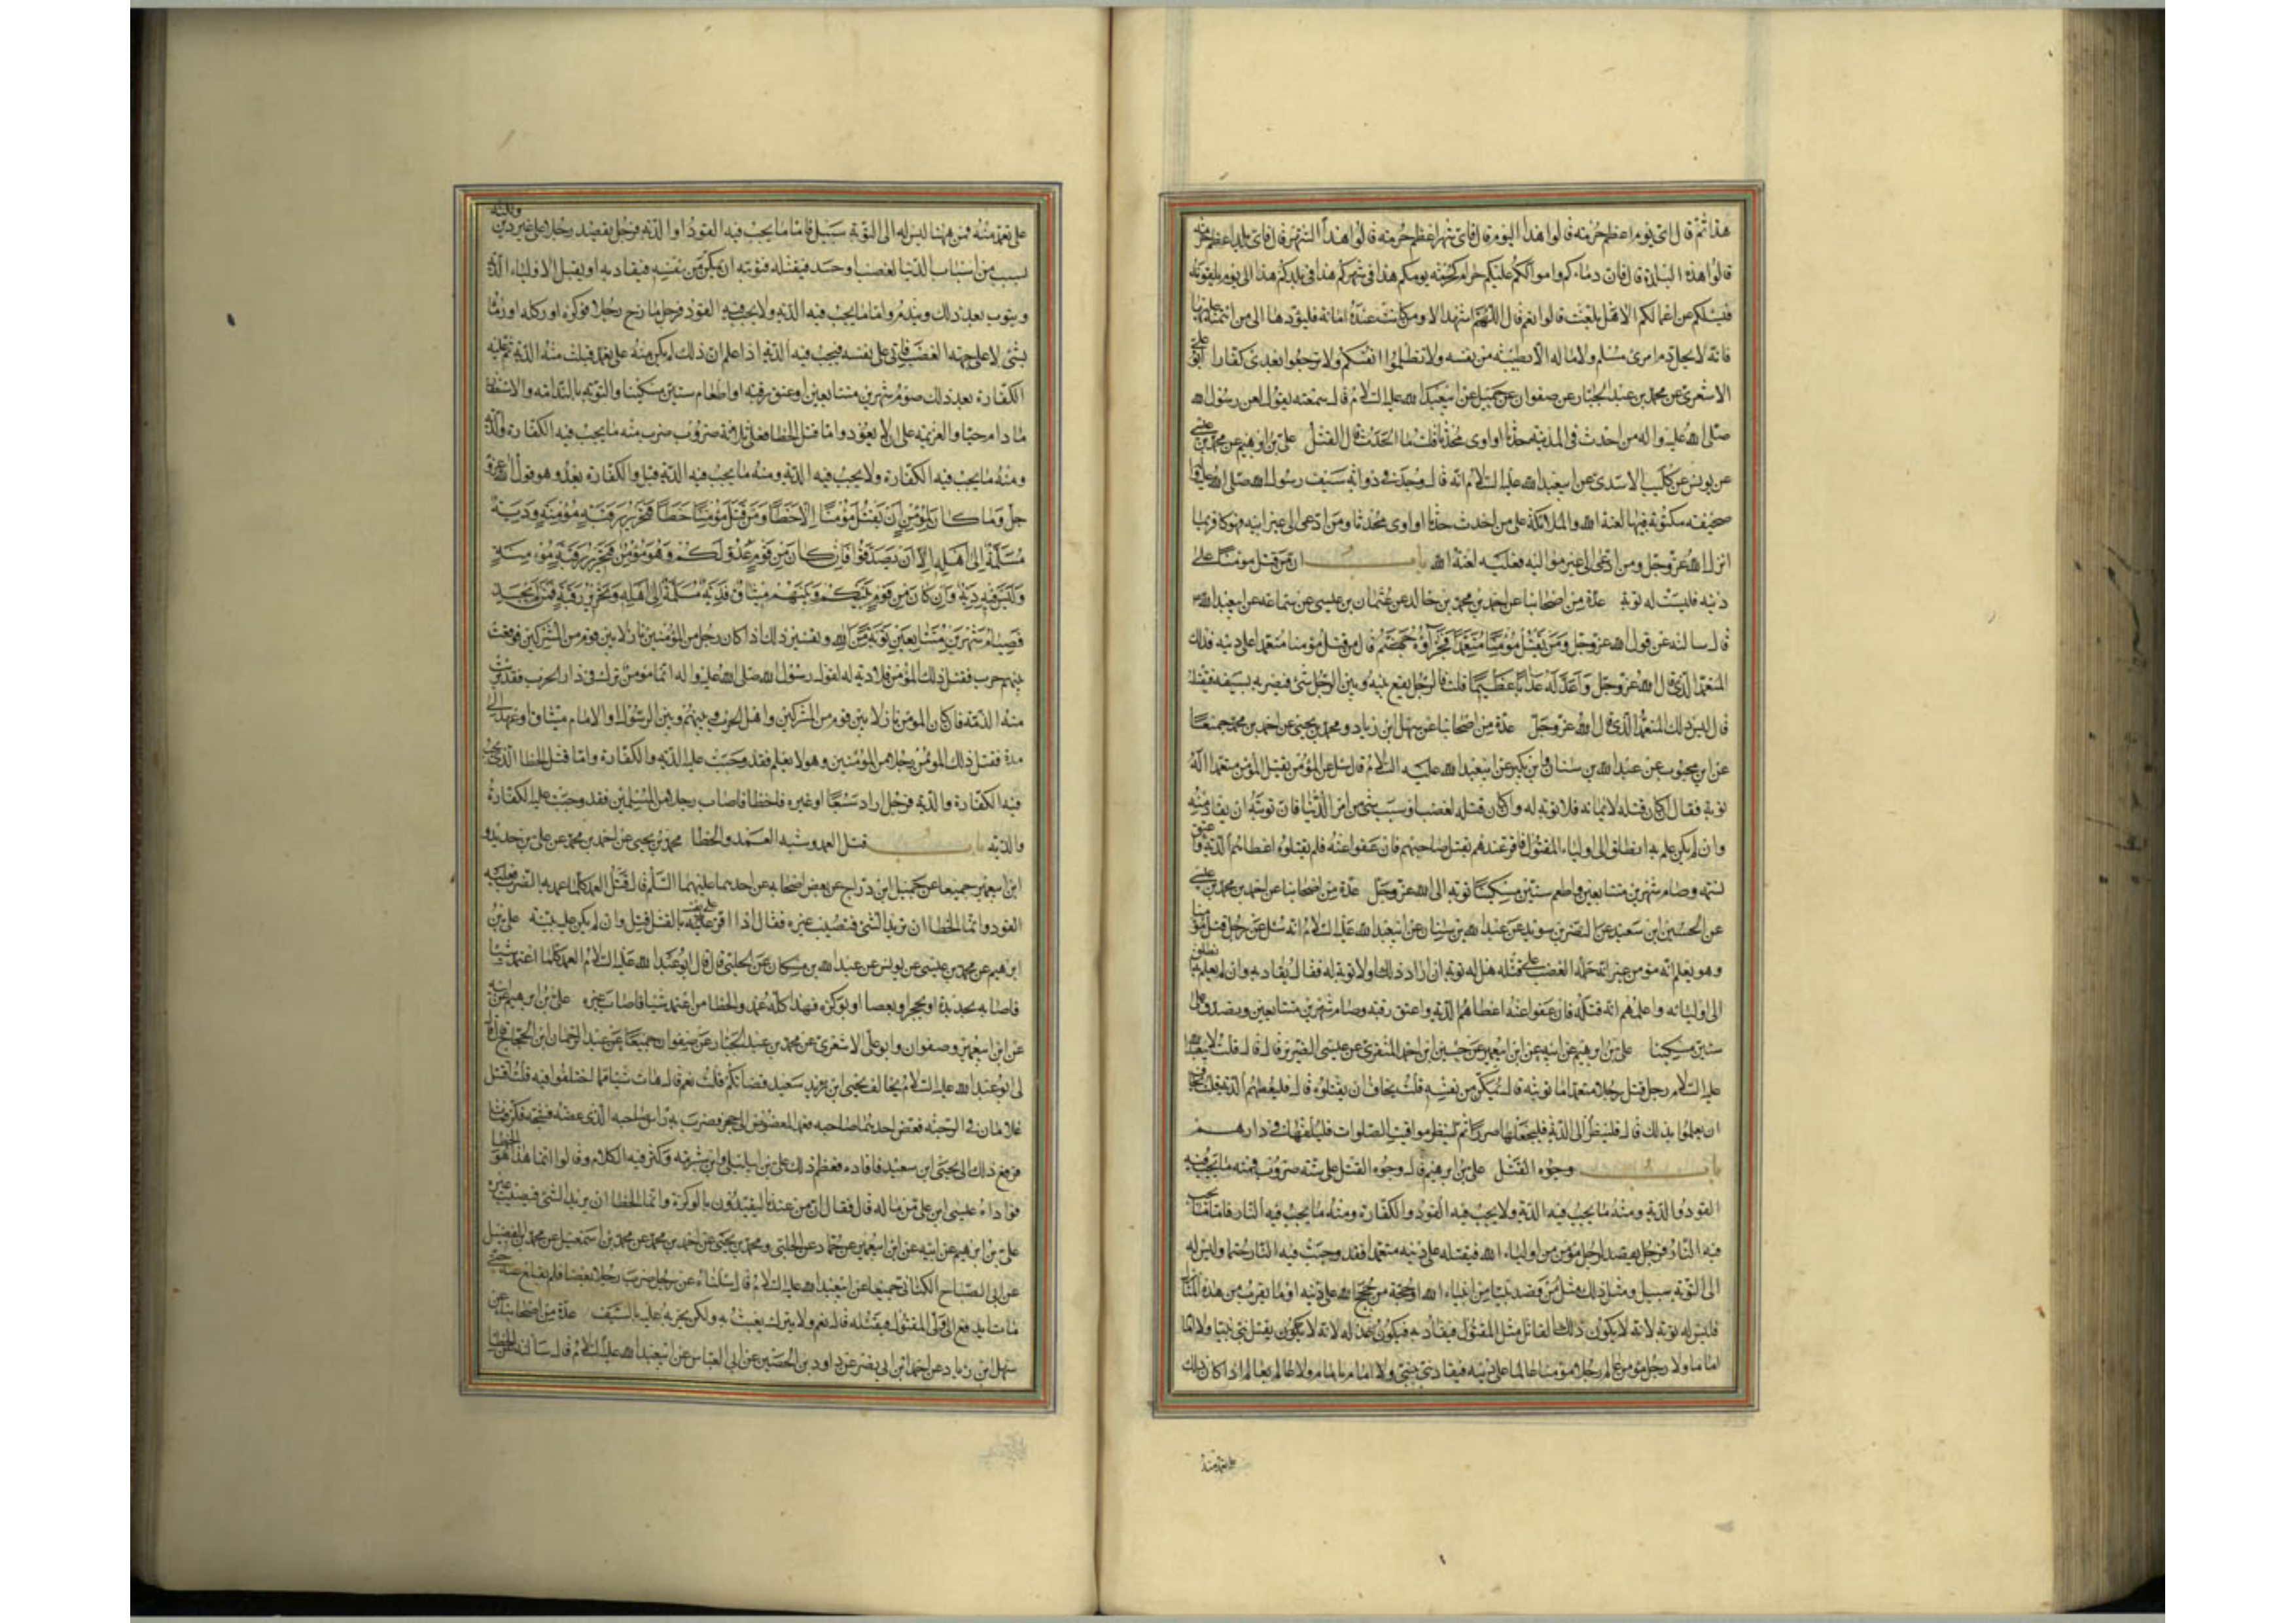 هذا ثم قال اى يوم اعظم حرمته قالوا هذا اليوم قال فاى شهر اعظم حرمته قالوا هذا الشهر قال فاى بلد اعظم حرمة
قالوا هذه البلدة قال فان دماءكم واموالكم عليكم حرام كحرمة يومكم هذا فى شهركم هذا فى بلدكم هذا الى يوم يلقونه
فيسئلكم عن اعمالكم الا هل بلغت قالوا نعم قال اللهم اشهد الا ومن كانت عنده امانة فليؤدها الى من ائتمنه عليها
فانه لا يحل دم امرئ مسلم ولا ماله الا بطيبة من نفسه ولا تظلموا انفسكم ولا ترجعوا بعدى كفارا ابو على
الاشعرى عن محمد بن عبد الجبار عن صفوان عن جميل عن ابيعبد الله عليه السلام قال سمعته يقول لعن رسول الله
صلى الله عليه واله من احدث فى المدينة محدثا او اوى محدثا قلت ما الحدث قال القتل على بن ابرهيم عن محمد بن عيسى
عن يونس عن كليب الاسدى عن ابيعبد الله عليه السلام انه قال وجد فى ذوابة سيف رسول الله صلى الله عليه وا
صحيفة مكتوبة فيها لعنة الله والملائكة على من احدث حدثا او اوى محدثا ومن ادعى الى غير ابيه فهو كافر بما
انزل الله عز وجل ومن ادعى الى غير مواليه فعليه لعنة الله باب ان من قتل مومنا على
دينه فليست له توبة عدة من اصحابنا عن احمد بن محمد بن خالد عن عثمان بن عيسى عن سماعة عن ابيعبد الله ع
قال سالته عن قول الله عز وجل ومن يقتل مؤمنا متعمدا فجزآؤه جهنم قال من قتل مؤمنا متعمدا على دينه فذلك
المتعمد الذى قال الله عز وجل واعد له عذابا عظيما قلت فالرجل يقع بينه وبين الرجل شئ فيضربه بسيفه فيقتله
قال ليس ذلك المتعمد الذى قال الله عز وجل عدة من اصحابنا عن سهل ابن زياد ومحمد بن يحيى عن احمد بن محمد جميعا
عن ابن محبوب عن عبد الله بن سنان وابن بكير عن ابيعبد الله عليه السلام قال سئل عن المؤمن يقتل المؤمن متعمدا اله
توبة فقال ان كان قتله لايمانه فلا توبة له وان كان قتله لغضب او سبب شئ من امر الدنيا فان توبته ان يقاد منه
وان لم يكن علم به انطلق الى اولياء المقتول فاقر عندهم بقتل صاحبهم فان عفوا عنه فلم يقتلوه اعطاهم الدية واعتق
نسمة وصام شهرين متتابعين واطعم ستين مسكينا توبة الى الله عز وجل عدة من اصحابنا عن احمد بن محمد بن عيسى
عن الحسين ابن سعيد عن النضر بن سويد عن عبد الله بن سنان عن ابيعبد الله عليه السلام انه سئل عن رجل قتل مؤمنا
وهو يعلم انه مؤمن غير انه حمله الغضب على قتله هل له توبة ان اراد ذلك او لا توبة له فقال يقاد به وان لم يعلم به انطلق
الى اوليائه واعلمهم انه قتله فان عفوا عنه اعطاهم الدية واعتق رقبة وصام شهرين متتابعين وتصدق على
ستين مسكينا على بن ابرهيم عن ابيه عن ابن ابيعمير عن حسين ابن احمد المنقرى عن عيسى الضرير قال قلت لابيعبد الله
عليه السلام رجل قتل رجلا متعمدا ما توبته قال يمكن من نفسه قلت يخاف ان يقتلوه قال فليعطهم الدية قلت يخاف
ان يعلموا بذلك قال فلينظر الى الدية فليجعلها صررا ثم لينظر مواقيت الصلوات فليلقها فى دارهم
باب وجوه القتل على بن ابرهيم قال وجوه القتل على ستة ضروب فمنه ما يجب فيه
القود والدية ومنه ما يجب فيه الدية ولا يجب فيه القود والكفارة ومنه ما يجب فيه النار فاما ما يجب
فيه النار فرجل يقصد لرجل مؤمن من اولياء الله فيقتله على دينه متعمدا فقد وجبت فيه النار حتما وليس له
الى التوبة سبيل ومثل ذلك مثل من قصد نبيا من انبياء الله او حجة من حجج الله على دينه او ما يقرب من هذه المنازل
فليس له توبة لانه لا يكون ذلك القاتل مثل المقتول فيقاد به فيكون عدله لانه لا يكون يقتل نبى نبيا ولا امام
اماما ولا رجل مؤمن عالم رجلا مؤمنا عالما على دينه فيقاد نبى بنبى ولا امام بامام ولا عالم بعالم اذا كان ذلك
على تعمد منه
على تعمد منه فمن هيهنا ليس له الى التوبة سبيل فاما ما يجب فيه القود او الدية فرجل يقصد رجلا على غير دين ولكنه
لسبب من اسباب الدنيا لغضب او حسد فيقتله فتوبته ان يمكن من نفسه فيقاد به او يقبل الاولياء الدية
ويتوب بعد ذلك ويندم واما ما يجب فيه الدية ولا يجب فيه القود فرجل مازح رجلا فوكزه او ركله او رماه
بشئ لا على جهة الغضب فاتى على نفسه فيجب فيه الدية اذا علم ان ذلك لم يكن منه على تعمد قبلت منه الدية ثم عليه
الكفارة بعد ذلك صوم شهرين متتابعين او عتق رقبة او اطعام ستين مسكينا والتوبة بالندامة والاستغفار
ما دام حيا والعزيمة على ان لا يعود واما قتل الخطا فعلى ثلاثة ضروب ضرب منه ما يجب فيه الكفارة والدية
ومنه ما يجب فيه الكفارة ولا يجب فيه الدية ومنه ما يجب فيه الدية قبل والكفارة بعد وهو قول الله عز و
جل وما كان لمؤمن ان يقتل مؤمنا الا خطأ ومن قتل مؤمنا خطأ فتحرير رقبة مؤمنة ودية
مسلمة الى اهله الا ان يصدقوا فان كان من قوم عدو لكم وهو مؤمن فتحرير رقبة مؤمنة
وليس فيه دية وان كان من قوم بينكم وبينهم ميثاق فدية مسلمة الى اهله وتحرير رقبة فمن لم يجد
فصيام شهرين متتابعين توبة من الله وتفسير ذلك اذا كان رجل من المؤمنين نازلا بين قوم من المشركين فوقعت
بينهم حرب فقتل ذلك المؤمن فلا دية له لقول رسول الله صلى الله عليه واله ايما مؤمن نزل فى دار الحرب فقد برئت
منه الذمة فان كان المؤمن نازلا بين قوم من المشركين واهل الحرب وبينهم وبين الرسول او الامام ميثاق او عهد الى
مدة فقتل ذلك المؤمن رجل من المؤمنين وهو لا يعلم فقد وجبت عليه الدية والكفارة واما قتل الخطا الذى يجب
فيه الكفارة والدية فرجل اراد سبعا او غيره فاخطا فاصاب رجلا من المسلمين فقد وجبت عليه الكفارة
والدية باب قتل العمد وشبه العمد والخطا محمد بن يحيى عن احمد بن محمد عن على بن حديد و
ابن ابيعمير جميعا عن جميل ابن دراج عن بعض اصحابه عن احدهما عليهما السلم قال قتل العمد كلما عمد به الضرب فعليه
القود وانما الخطا ان تريد الشئ فتصيب غيره فقال اذا اقر على نفسه بالقتل قتل وان لم يكن عليه بينة على بن
ابرهيم عن محمد بن عيسى عن يونس عن عبد الله بن مسكان عن الحلبى قال قال ابو عبد الله عليه السلام العمد كلما اعتمد شيئا
فاصابه بحديدة او بحجر او بعصا او بوكزة فهذا كله عمد والخطا من اعتمد شيئا فاصاب غيره على بن ابرهيم عن ابيه
عن ابن ابيعمير وصفوان وابو على الاشعرى عن محمد بن عبد الجبار عن صفوان جميعا عن عبد الرحمان ابن الحجاج قال قال
لى ابو عبد الله عليه السلام يخالف يحيى ابن سعيد قضاتكم قلت نعم قال هات شيئا مما اختلفوا فيه قلت اقتتل
غلامان فى الرحبة فعض احدهما صاحبه فعمد المعضوض الى حجر فضرب به راس صاحبه الذى عضه فشجه فكز فمات
فرفع ذلك الى يحيى ابن سعيد فاقاده فعظم ذلك على ابن ابى ليلى وابن شبرمة وكثر فيه الكلام وقالوا انما هذا هو الخطا
فوداه عيسى ابن على من ماله قال فقال ان من عندنا ليقيدون بالوكزة وانما الخطا ان يريد الشئ فيصيب غيره
على بن ابرهيم عن ابيه عن ابن ابيعمير عن حماد عن الحلبى ومحمد بن يحيى عن احمد بن محمد عن محمد بن اسمعيل عن محمد بن الفضيل
عن ابى الصباح الكنانى جميعا عن ابيعبد الله عليه السلام قال سئلناه عن رجل ضرب رجلا بعصا فلم يقلع عنه حتى
مات ايدفع الى ولى المقتول فيقتله قال نعم ولا يترك يعبث به ولكن يجيز عليه بالسيف عدة من اصحابنا عن
سهل ابن زياد عن احمد ابن ابى نصر عن داود بن الحصين عن ابى العباس عن ابيعبد الله عليه السلام قال سالته عن الخطا